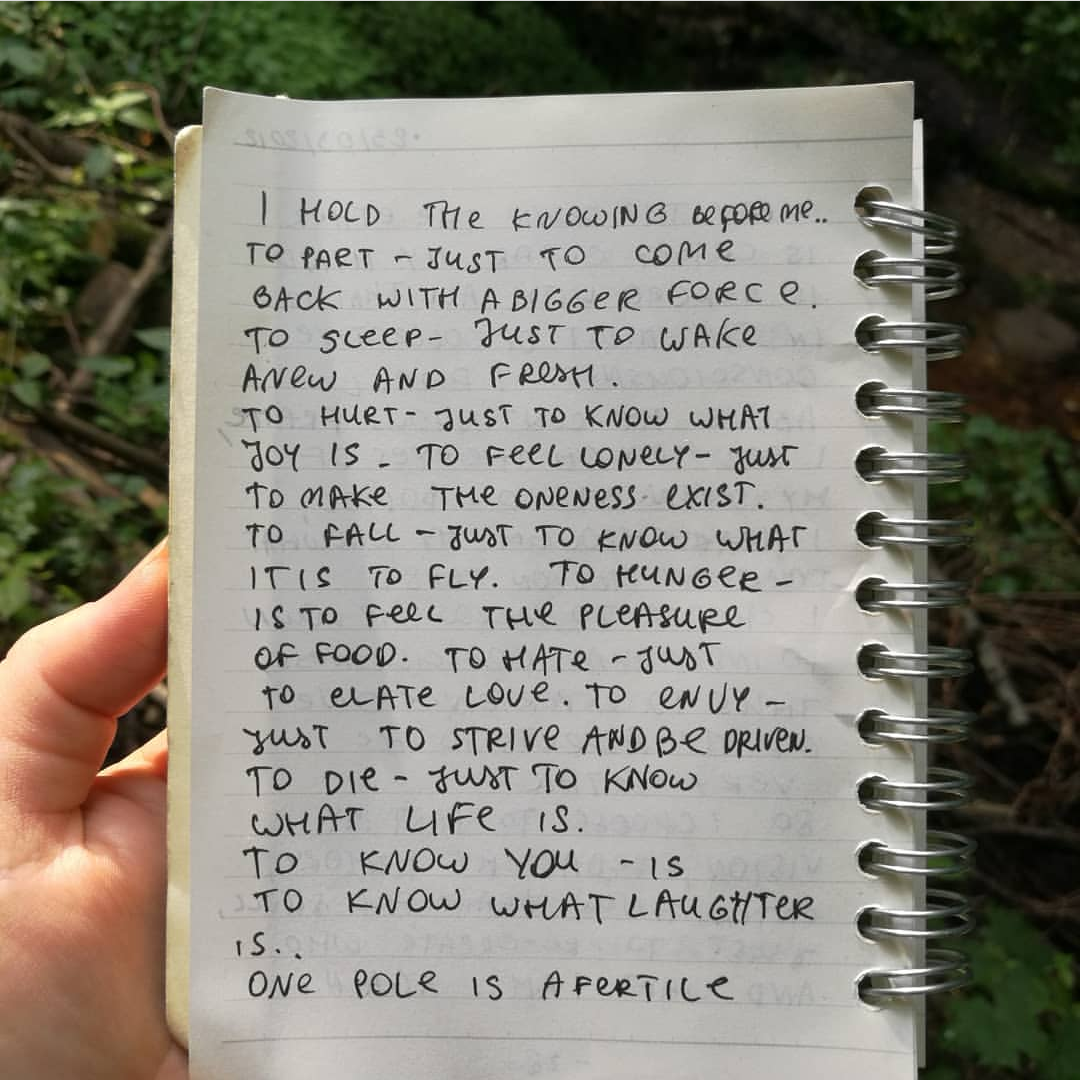 I HOLD THE KNOWING BEFORE ME..
TO PART - JUST TO COME
BACK WITH A BIGGER FORCE.
TO SLEEP - JUST TO WAKE
ANEW AND FRESH.
TO HURT - JUST TO KNOW WHAT
JOY IS. TO FEEL LONELY - JUST
TO MAKE THE ONENESS EXIST.
TO FALL - JUST TO KNOW WHAT
IT IS TO FLY. TO HUNGER -
IS TO FEEL THE PLEASURE
OF FOOD. TO HATE - JUST
TO ELATE LOVE. TO ENVY -
JUST TO STRIVE AND BE DRIVEN.
TO DIE - JUST TO KNOW
WHAT LIFE IS.
TO KNOW YOU - IS
TO KNOW WHAT LAUGHTER
IS..
ONE POLE IS A FERTILE